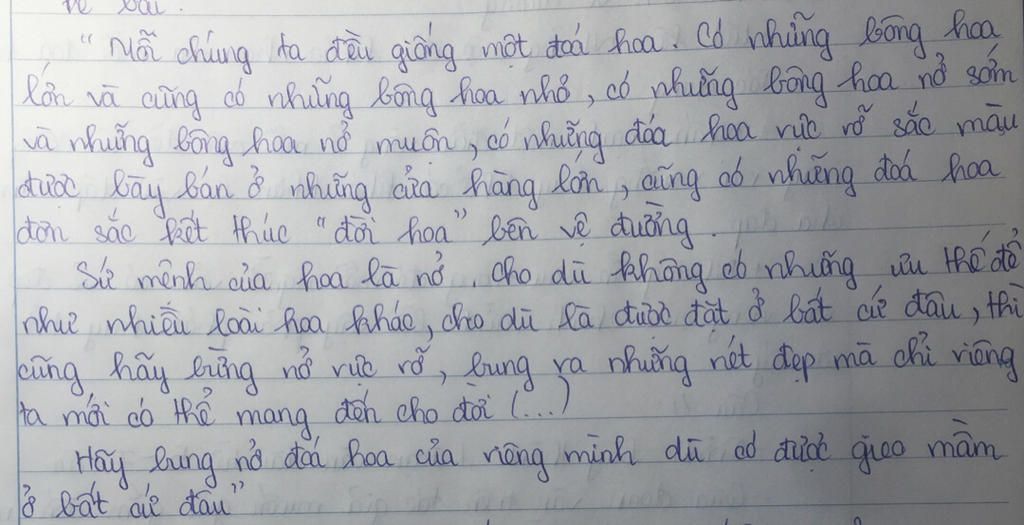 vẽ bài.
"Mỗi chúng ta đều giống một đoá hoa. Có những bông hoa
lớn và cũng có những bông hoa nhỏ, có những bông hoa nở sớm
và những bông hoa nở muộn, có những đóa hoa rực rỡ sắc màu
được bày bán ở những cửa hàng lớn, cũng có những đoá hoa
đơn sắc kết thúc "đời hoa" bên vệ đường.
Sứ mệnh của hoa là nở. Cho dù không có những ưu thế để
như nhiều loài hoa khác, cho dù là được đặt ở bất cứ đâu, thì
cũng hãy bừng nở rực rỡ, bung ra những nét đẹp mà chỉ riêng
ta mới có thể mang đến cho đời (...)
Hãy bung nở đoá hoa của riêng mình dù có được gieo mầm
ở bất cứ đâu"